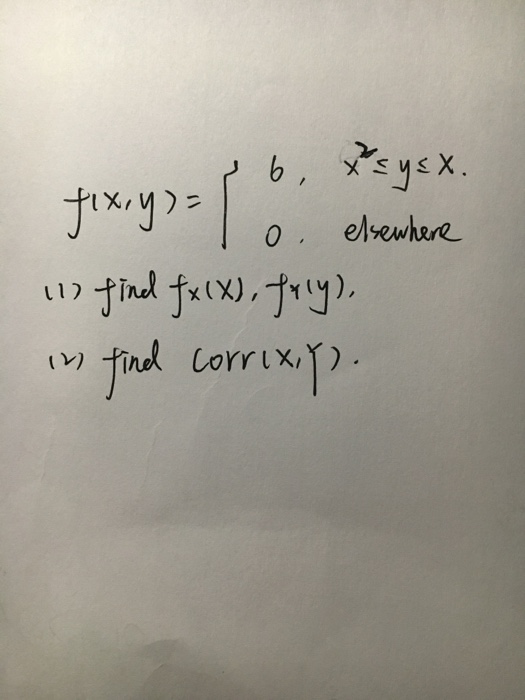 f(x,y) = { 6, x² ≤ y ≤ x.
0, elsewhere
(1) find fx(x), fY(y),
(2) find corr(X,Y).